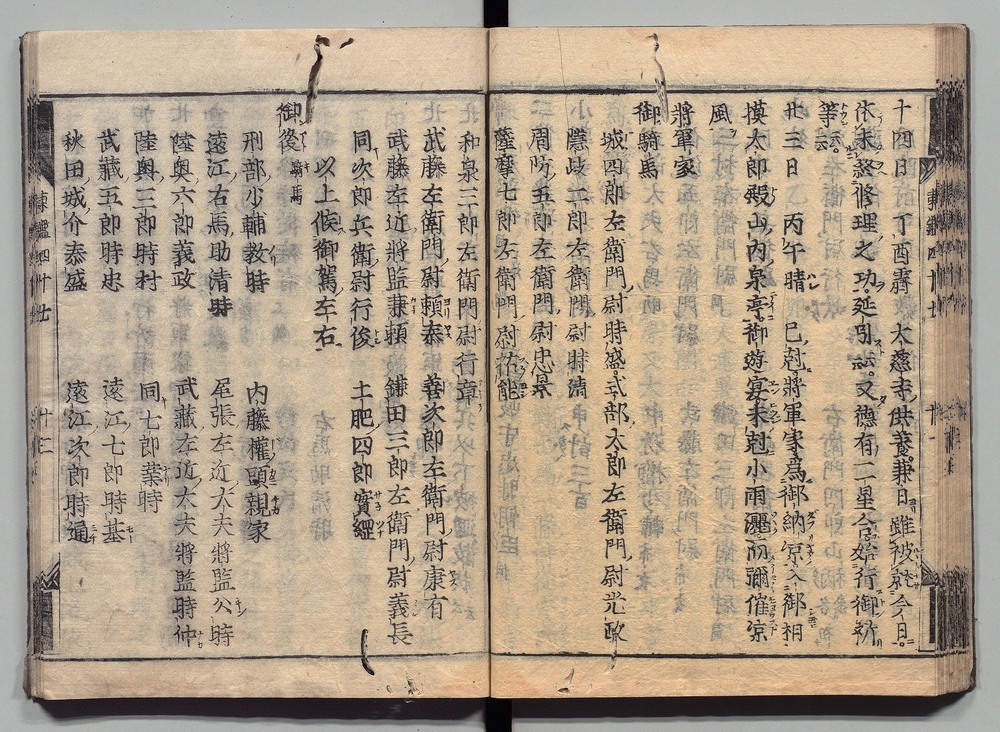 十四日 丁酉霽 太慈寺供養兼日雖被定今日
依未終修理之功延引云云又德有二星合始行御祈
等云云
廿三日 丙午晴 巳剋將軍家為御納凉入御相
模太郎殿山内泉亭御遊宴未剋小雨灑而彌催凉
風
將軍家
御騎馬
城四郎左衛門尉時盛 式部太郎左衛門尉光政
隱岐二郎左衛門尉時清
周防五郎左衛門尉忠景
薩摩七郎左衛門尉祐能
和泉三郎左衛門尉行章
武藤左衛門尉頼泰 善次郎左衛門尉康有
武藤左近將監兼頼 鎌田三郎左衛門尉義長
同次郎兵衛尉行俊 土肥四郎實經
以上候御駕左右
御後 騎馬
刑部少輔教時 内藤權頭親家
遠江右馬助清時 尾張左近大夫將監公時
陸奧六郎義政 武藏左近大夫將監時仲
陸奧三郎時村 同七郎業時
武藏五郎時忠 遠江七郎時基
秋田城介泰盛 遠江次郎時通
東鑑四十七
廿二